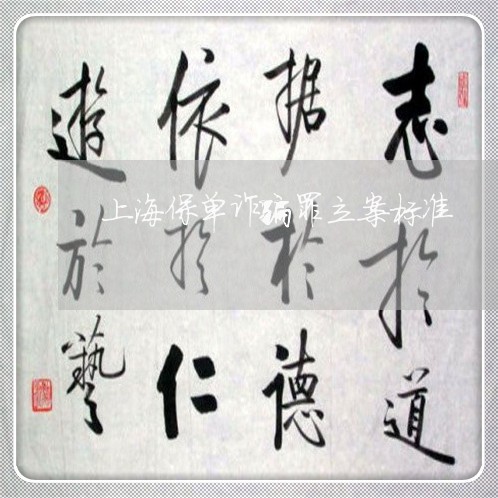 志於道
据於德
依於仁
遊於藝
上海保单诈骗罪立案标准